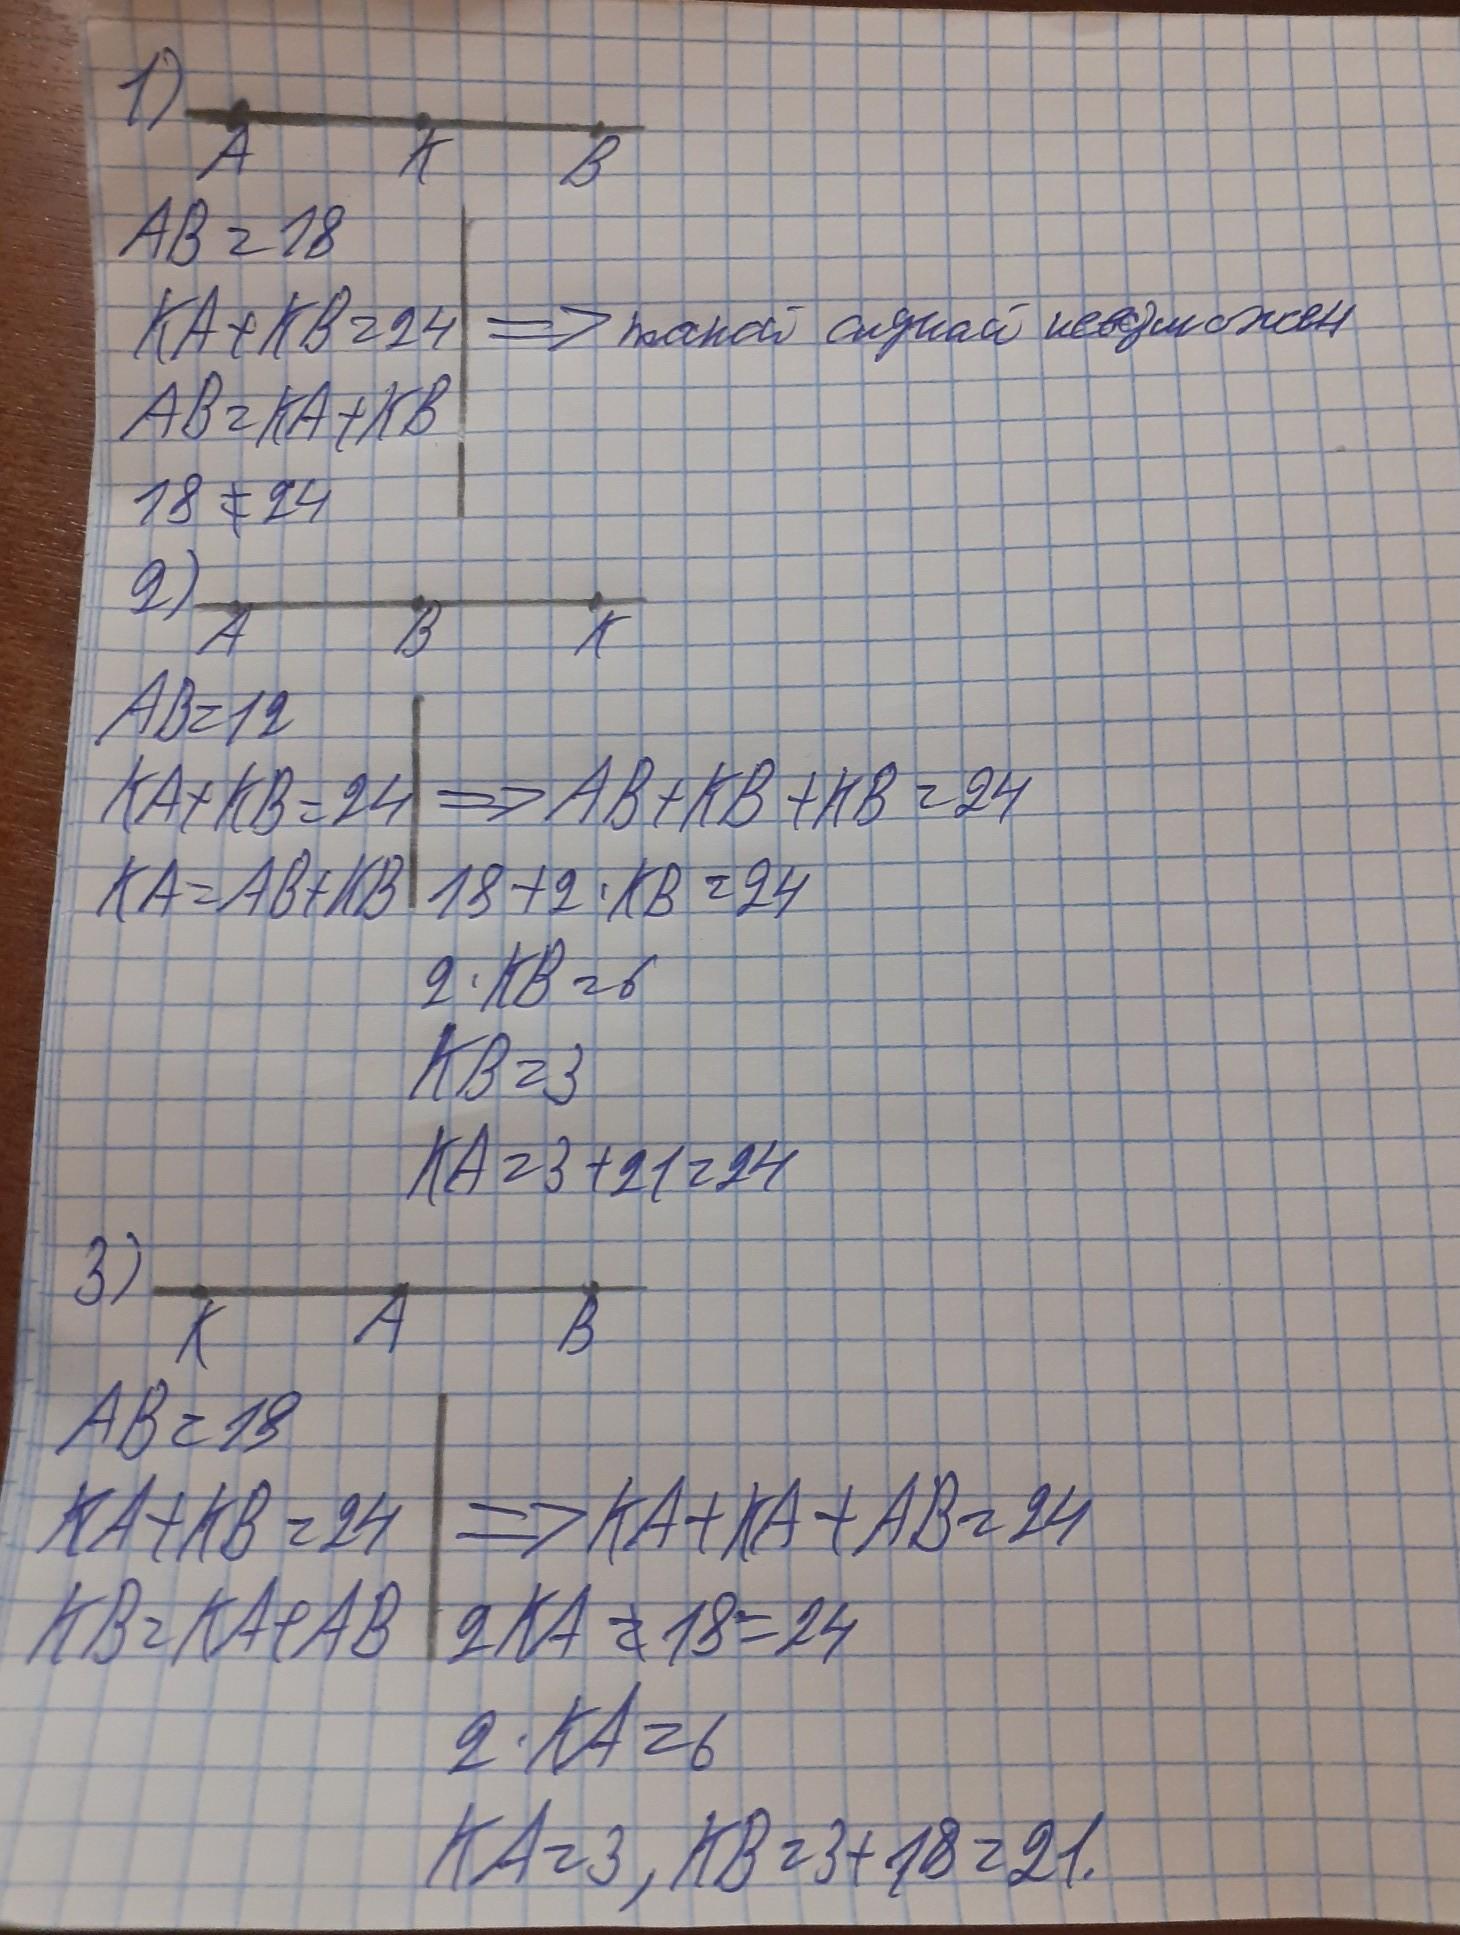 1)
A K B
AB=18
KA+KB=24 => такой случай невозможен
AB=KA+KB
18≠24
2)
A B K
AB=12
KA+KB=24 => AB+KB+KB=24
KA=AB+KB 18+2·KB=24
2·KB=6
KB=3
KA=3+21=24
3)
K A B
AB=18
KA+KB=24 => KA+KA+AB=24
KB=KA+AB 2KA+18=24
2·KA=6
KA=3, KB=3+18=21.